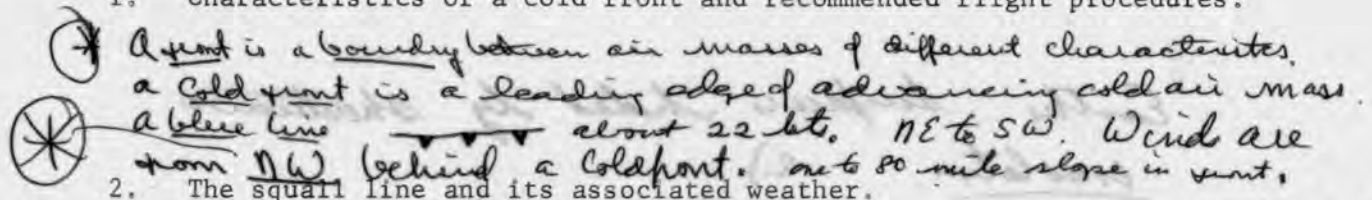 1. Characteristics of a cold front and recommended flight procedures.
A front is a boundry between air masses of different characterites.
a Cold front is a leading edge of advancing cold air mass.
a blue line about 22 kts. NE to SW. Winds are
from NW behind a Coldfront. one to 80 mile slope in front.
2. The squall line and its associated weather.